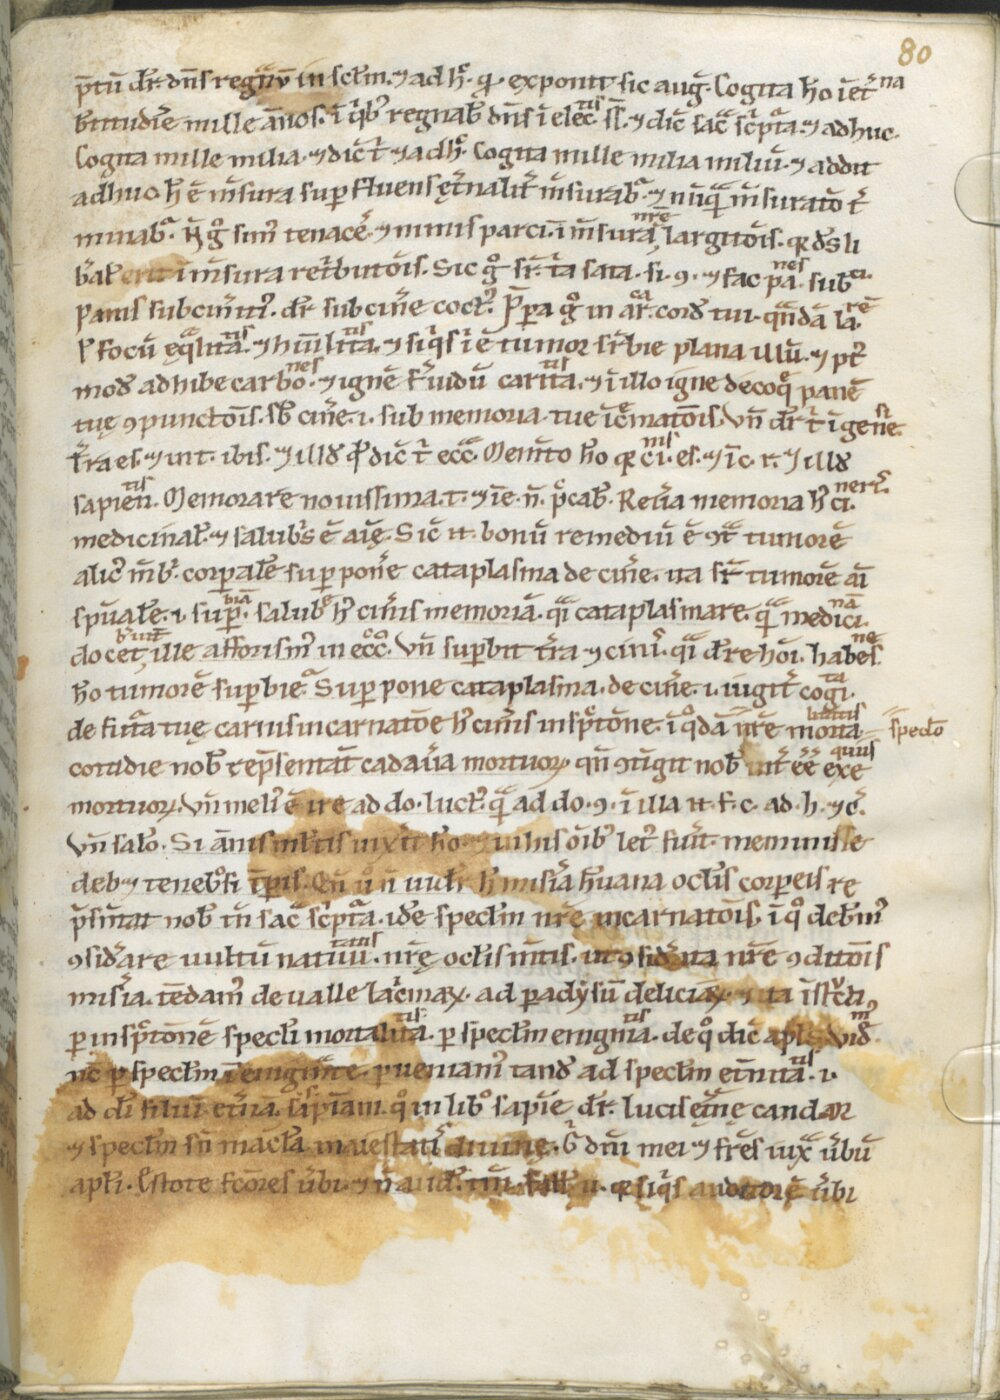 80
p̄tū dr̄. dn̄s regn̄v in sclm̄. ⁊ ad h̄. q. exponit sic auḡ. Cogita ho ī et̄na
btitudīe mille ān̄os. ī qb; regnab̄ dn̄s ī elec̄tis ss̄. ⁊ dic̄ sac̄ sc̄pta. ⁊ adhuc.
Cogita mille milia. ⁊ dic̄ t̄ ⁊ adh̄. Cogita mille milia miliū. ⁊ addit
adhuc h̄ ē m̄sura superfluens ęt̄nalit̄ m̄surab̄. ⁊ nūq̄ m̄surato t̄
minab̄. N̄ g° sim; tenaces ⁊ nimis parci. ī m̄sura nr̄e largitōis. q ds̄ li
b̄al erit ī m̄sura ret̄butōis. Sic g° sr̄. t̄a sata. si. 9. ⁊ fac panes sub ci.
Panis subcin̄iti; dr̄ subcin̄e coct;. P̄pa g° in ar̄ca cord̄ tui. quādā larē
l̄ focū ęqlitatis. ⁊ humlitatis. ⁊ siq̄s ī ē tumor suṗbie plana illū. ⁊ pt̄
mod̄ adhibe carbones. ⁊ ignē f̄uidū caritatis. ⁊ ī illo igne decoq̄ panē
tuę 9punctōis. sb̄ cin̄e. i. sub memoria. tue īcin̄matōis. Vn̄ dr̄ t̄ ī genesi.
t̄ra es. ⁊ in t. ibis. ⁊ illd̄ qd̄ dic̄ t̄ ecc̄. Mem̄to ho q cinis. es. ⁊ ī c. r. ⁊ illd̄
sapientis. Memorare nouissima. t. ⁊ ī e. n̄. p̄cab̄. Reūa memoria h̄ cineris.
medicinal̄. ⁊ salub̄s ē aīę. Sic̄ n̄. bonū remediū ē 9t̄ tumorē
alic; m̄b̄. corpale superpon̄e cataplasma de cin̄e. ita 9t̄ tumorē aī
spūale. i. superbiā. salub̄ē h̄ cin̄is memoriā. qi cataplasmare. q medicinā.
docet ille afforism; in ecc̄°. Vn̄ superbit t̄ra ⁊ cinis. qi dr̄e hoī. habes ne
ho tumorē superbie. Superpone cataplasma. de cin̄e. i. iugit̄ cogita.
de fut̄a tuę carnis incarnatōe h̄ cin̄is inspctōne. ī q° dā nr̄e mortalitatis
spec̄lo
cotidie nob̄ rep̄sentāt cadaūa mortuoꝝ. qn̄ 9tigit nob̄ int̄ ēē exequiis
mortuoꝝ. Vn̄ meli; ē ire ad do. luct;. q̄ ad do. 9. ī illa n̄. f. c. ad. h. ⁊ c̄.
Vn̄ salo. Si ānis ml̄tis uixit ho. ⁊ ī his oīb; let; fuīt. meminisse
deb⁊ tenebosi tp̄is. Qn̄ ū n̄ uidr̄ h̄ misīa hūana oc̄lis corpeis re
p̄sn̄tat nob̄ tn̄ sac̄ sc̄pta. ide spec̄lm nr̄e incarnatōis. ī q° debem;
9sid̄are uultū natiuitatis. nr̄ę oc̄lis m̄tis. ut 9sid̄ata nr̄e 9ditōis
misīa. tēdam; de ualle lac̄maꝝ. ad paradysū deliciaꝝ. ⁊ ita īst̄cti,
p inspctōnē spec̄li mortalitatis. p spec̄lm enigmatis. de q° dic̄ apl̄s. Videm;
nc̄ p spec̄lm ī enigmate. pueniam; tand̄ ad spec̄lm et̄nitatis. i.
ad dī filiū et̄na. sapīam. q° in lib° sapīe dr̄. lucis et̄nę candor
⁊ spec̄lm sn̄ mac̄la maiestatis diuinę. G dn̄i mei ⁊ fr̄es iux̄ ūbū
apl̄i. Estote fc̄ores ūbi. ⁊ n̄ aud̄. tm̄. fall̄. u. q siq̄s auditor ē ūbi